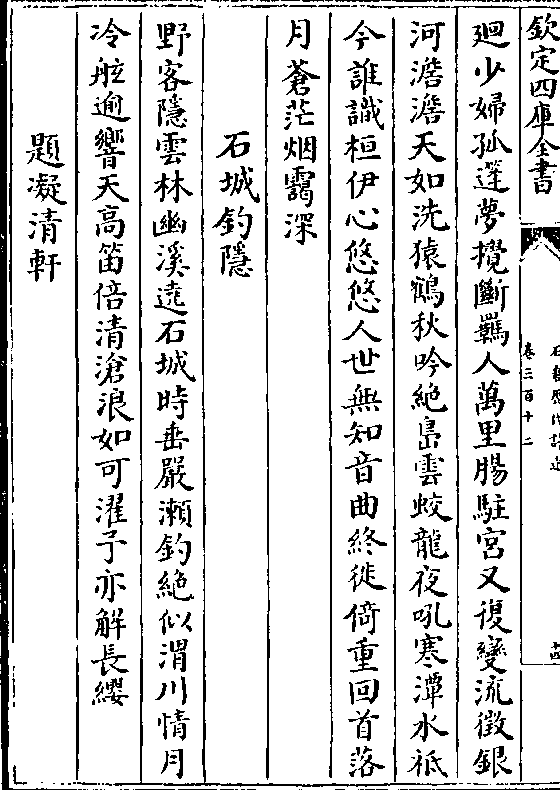 欽定四庫全書
卷三百十二
迴少婦孤篷夢攪斷羈人萬里腸駐宮又復變流徵銀
河澹澹天如洗猿鶴秋吟絶島雲蛟龍夜吼寒潭水祗
今誰識桓伊心悠悠人世無知音曲終徙倚重回首落
月蒼茫烟靄深
石城釣隱
野客隱雲林幽溪遶石城時垂嚴瀬釣絶似渭川情月
冷舷逾響天高笛倍清滄浪如可濯予亦解長纓
題凝清軒